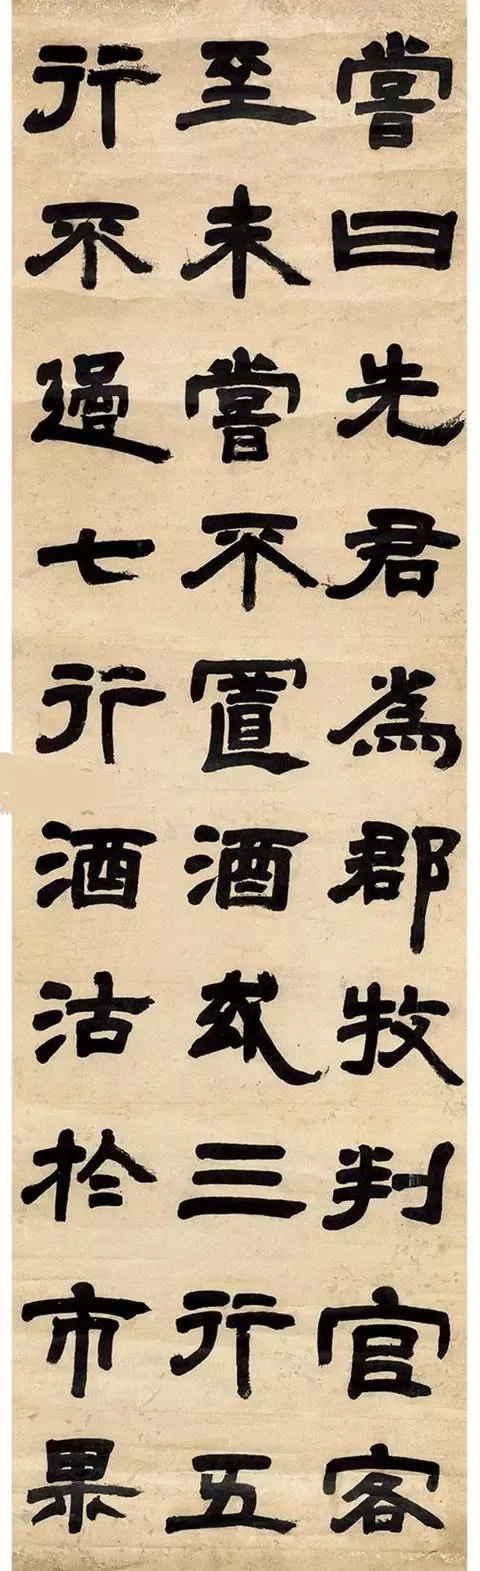 嘗曰先君為郡牧判官客
至未嘗不置酒或三行五
行不過七行酒沽於市果